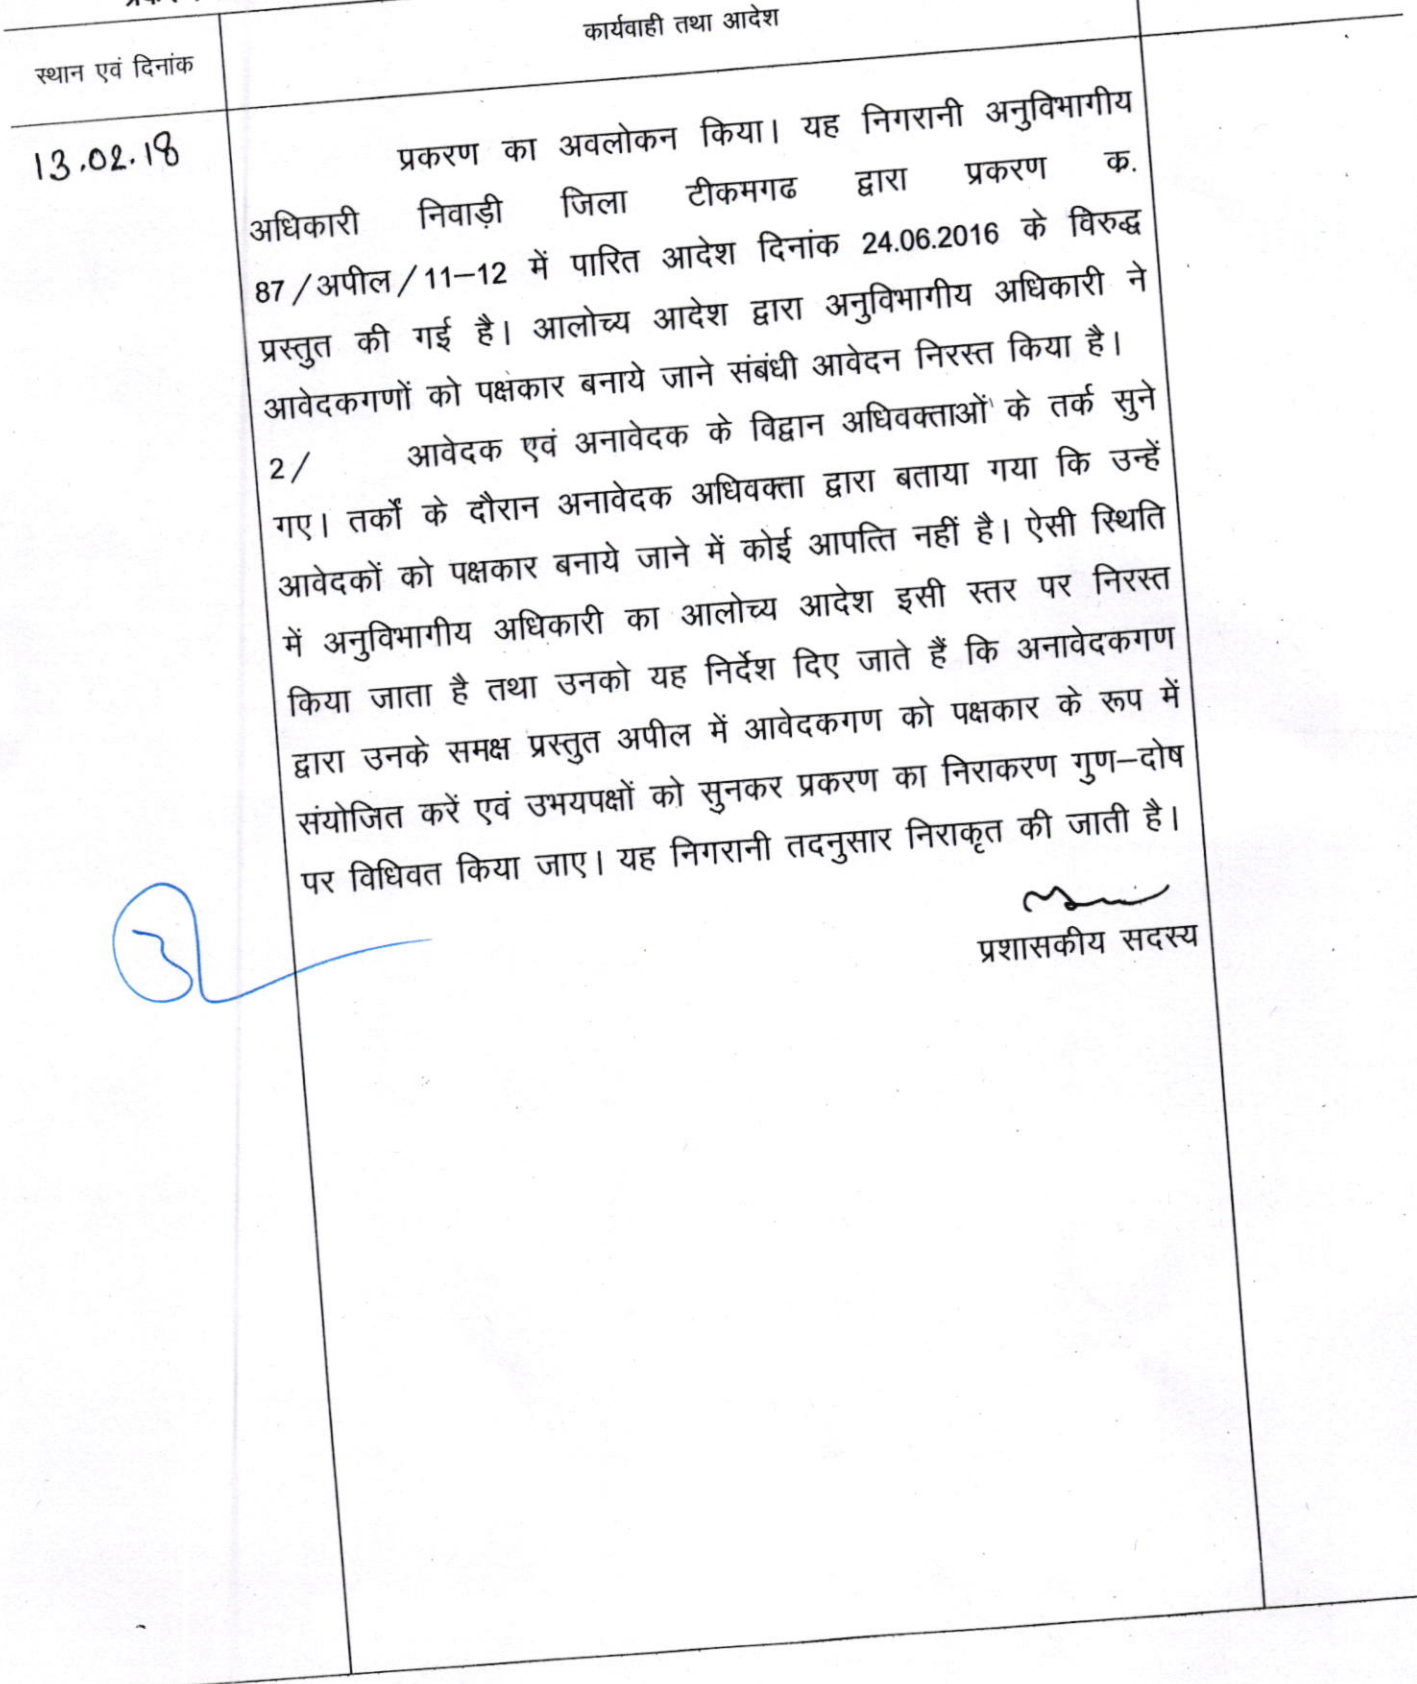 कार्यवाही तथा आदेश
स्थान एवं दिनांक
13.02.18
प्रकरण का अवलोकन किया। यह निगरानी अनुविभागीय
अधिकारी निवाड़ी जिला टीकमगढ द्वारा प्रकरण क.
87/अपील/11–12 में पारित आदेश दिनांक 24.06.2016 के विरुद्ध
प्रस्तुत की गई है। आलोच्य आदेश द्वारा अनुविभागीय अधिकारी ने
आवेदकगणों को पक्षकार बनाये जाने संबंधी आवेदन निरस्त किया है।
2/ आवेदक एवं अनावेदक के विद्वान अधिवक्ताओं के तर्क सुने
गए। तर्कों के दौरान अनावेदक अधिवक्ता द्वारा बताया गया कि उन्हें
आवेदकों को पक्षकार बनाये जाने में कोई आपत्ति नहीं है। ऐसी स्थिति
में अनुविभागीय अधिकारी का आलोच्य आदेश इसी स्तर पर निरस्त
किया जाता है तथा उनको यह निर्देश दिए जाते हैं कि अनावेदकगण
द्वारा उनके समक्ष प्रस्तुत अपील में आवेदकगण को पक्षकार के रूप में
संयोजित करें एवं उभयपक्षों को सुनकर प्रकरण का निराकरण गुण–दोष
पर विधिवत किया जाए। यह निगरानी तदनुसार निराकृत की जाती है।
प्रशासकीय सदस्य